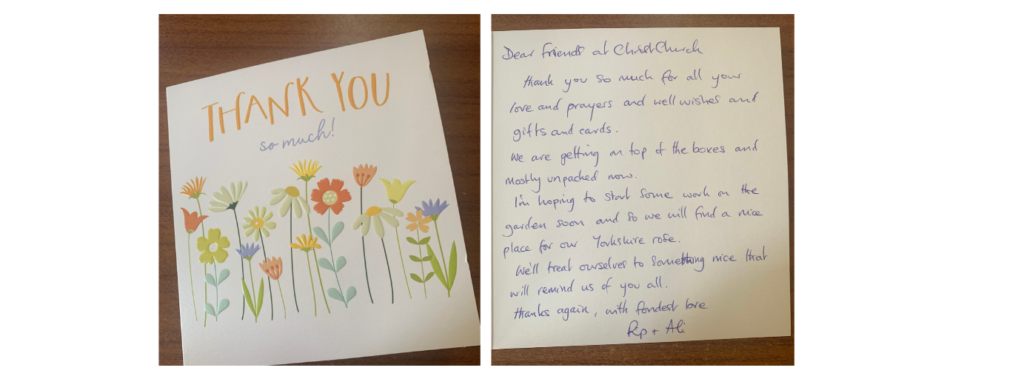 THANK YOU
so much!
Dear friends at ChristChurch
Thank you so much for all your
love and prayers and well wishes and
gifts and cards.
We are getting on top of the boxes and
mostly unpacked now.
I'm hoping to start some work on the
garden soon and so we will find a nice
place for our Yorkshire rose.
We'll treat ourselves to something nice that
will remind us of you all.
Thanks again, with fondest love
+ Ali